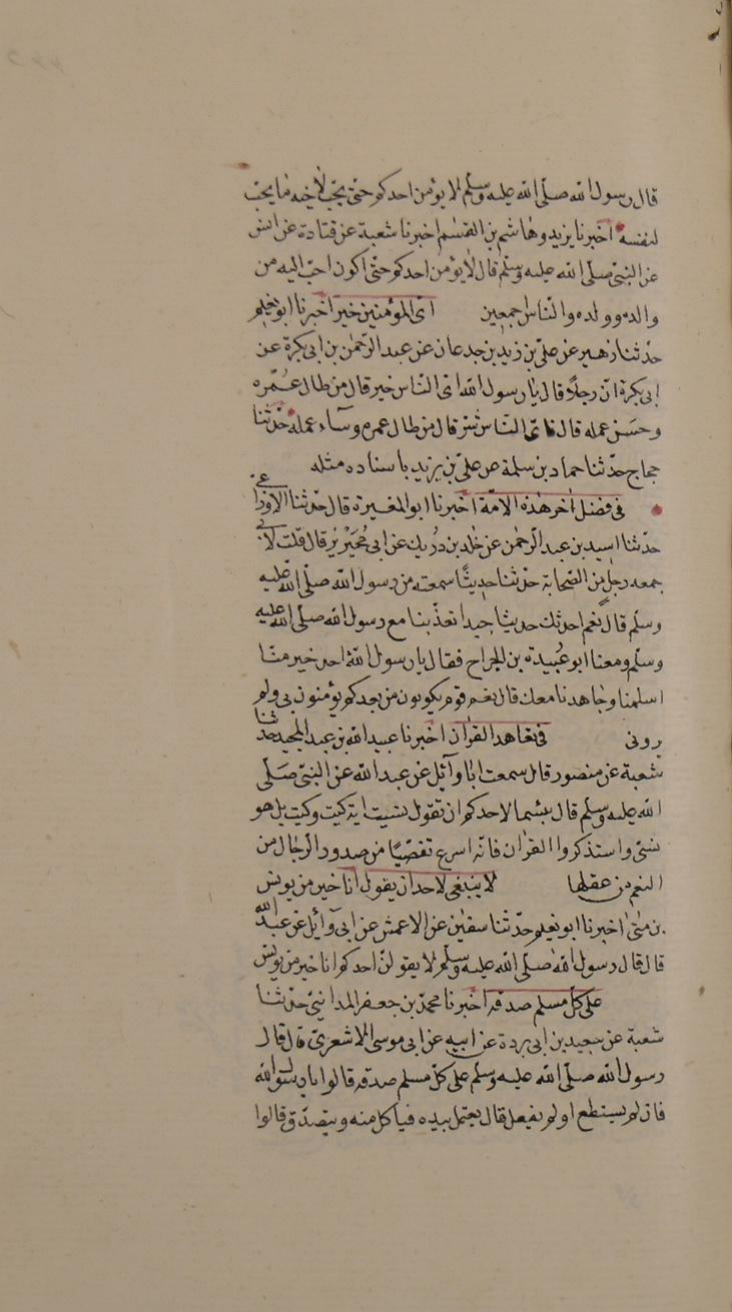 قال رسول الله صلّى الله عليه وسلّم لا يؤمن احدكم حتّى يحبّ لأخيه ما يحبّ
لنفسه اخبرنا يزيد وهاشم بن القسم اخبرنا شعبة عن قتادة عن انس
عن النبيّ صلّى الله عليه وسلّم قال لا يؤمن احدكم حتّى اكون احبّ اليه من
والده وولده والناس اجمعين اىّ المؤمنين خير اخبرنا ابو نعيم
حدّثنا زهير عن علىّ بن زيد بن جدعان عن عبد الرّحمٰن بن ابى بكرة عن
ابى بكرة انّ رجلًا قال يا رسول الله اىّ النّاس خير قال من طال عمره
وحسن عمله قال فاىّ النّاس شرّ قال من طال عمره وسآء عمله حدّثنا
حجاج حدّثنا حماد بن سلمة عن علىّ بن يزيد باسناده مثله
فى فضل اٰخر هٰذه الامّة اخبرنا ابو المغيرة قال حدّثنا الاوزاعى
حدّثنا اسيد بن عبد الرحمٰن عن خٰلد بن دُريك عن ابى مُحَيْريز قال قلت لابى
جمعه رجل من الصّحابة حدّثنا حديثًا سمعته من رسول الله صلّى الله عليه
وسلّم قال نعم احدثك حديثا جيدا تغدّينا مع رسول الله صلّى الله عليه
وسلّم ومعنا ابو عُبيدة بن الجراح فقال يا رسول الله احد خير منّا
اسلمنا وجاهدنا معك قال نعم قوم يكونون من بعدكم يؤمنون بى ولم
يرونى فى تعاهد القراٰن اخبرنا عبيد الله بن عبد المجيد حدّثنا
شعبة عن منصور قال سمعت ابا وآئل عن عبد الله عن النبىّ صلّى
الله عليه وسلّم قال بئسما لاحدكم ان تقول نسيت اية كيت وكيت بل هو
نسّى واستذكروا القراٰن فانّه اسرع تفصّيًا من صدور الرّجال من
النعم من عقلها لا ينبغى لاحد ان يقول انا خير من يونس
بن متى اخبرنا ابو نعيم حدّثنا سفيٰن عن الاعمش عن ابى وآئل عن عبد الله
قال قال رسول الله صلّى الله عليه وسلّم لا يقولنّ احدكم انا خير من يونس
على كلّ مسلم صدقه اخبرنا محمد بن جعفر المدائنىّ حدّثنا
شعبة عن سعيد بن ابى بردة عن ابيه عن ابى موسى الاشعرىّ قال قال
رسول الله صلّى الله عليه وسلّم على كلّ مسلم صدقه قالوا يا رسول الله
فان لم يستطع او لم يفعل قال يعتمل بيده فيأكل منه ويتصدّق قالوا